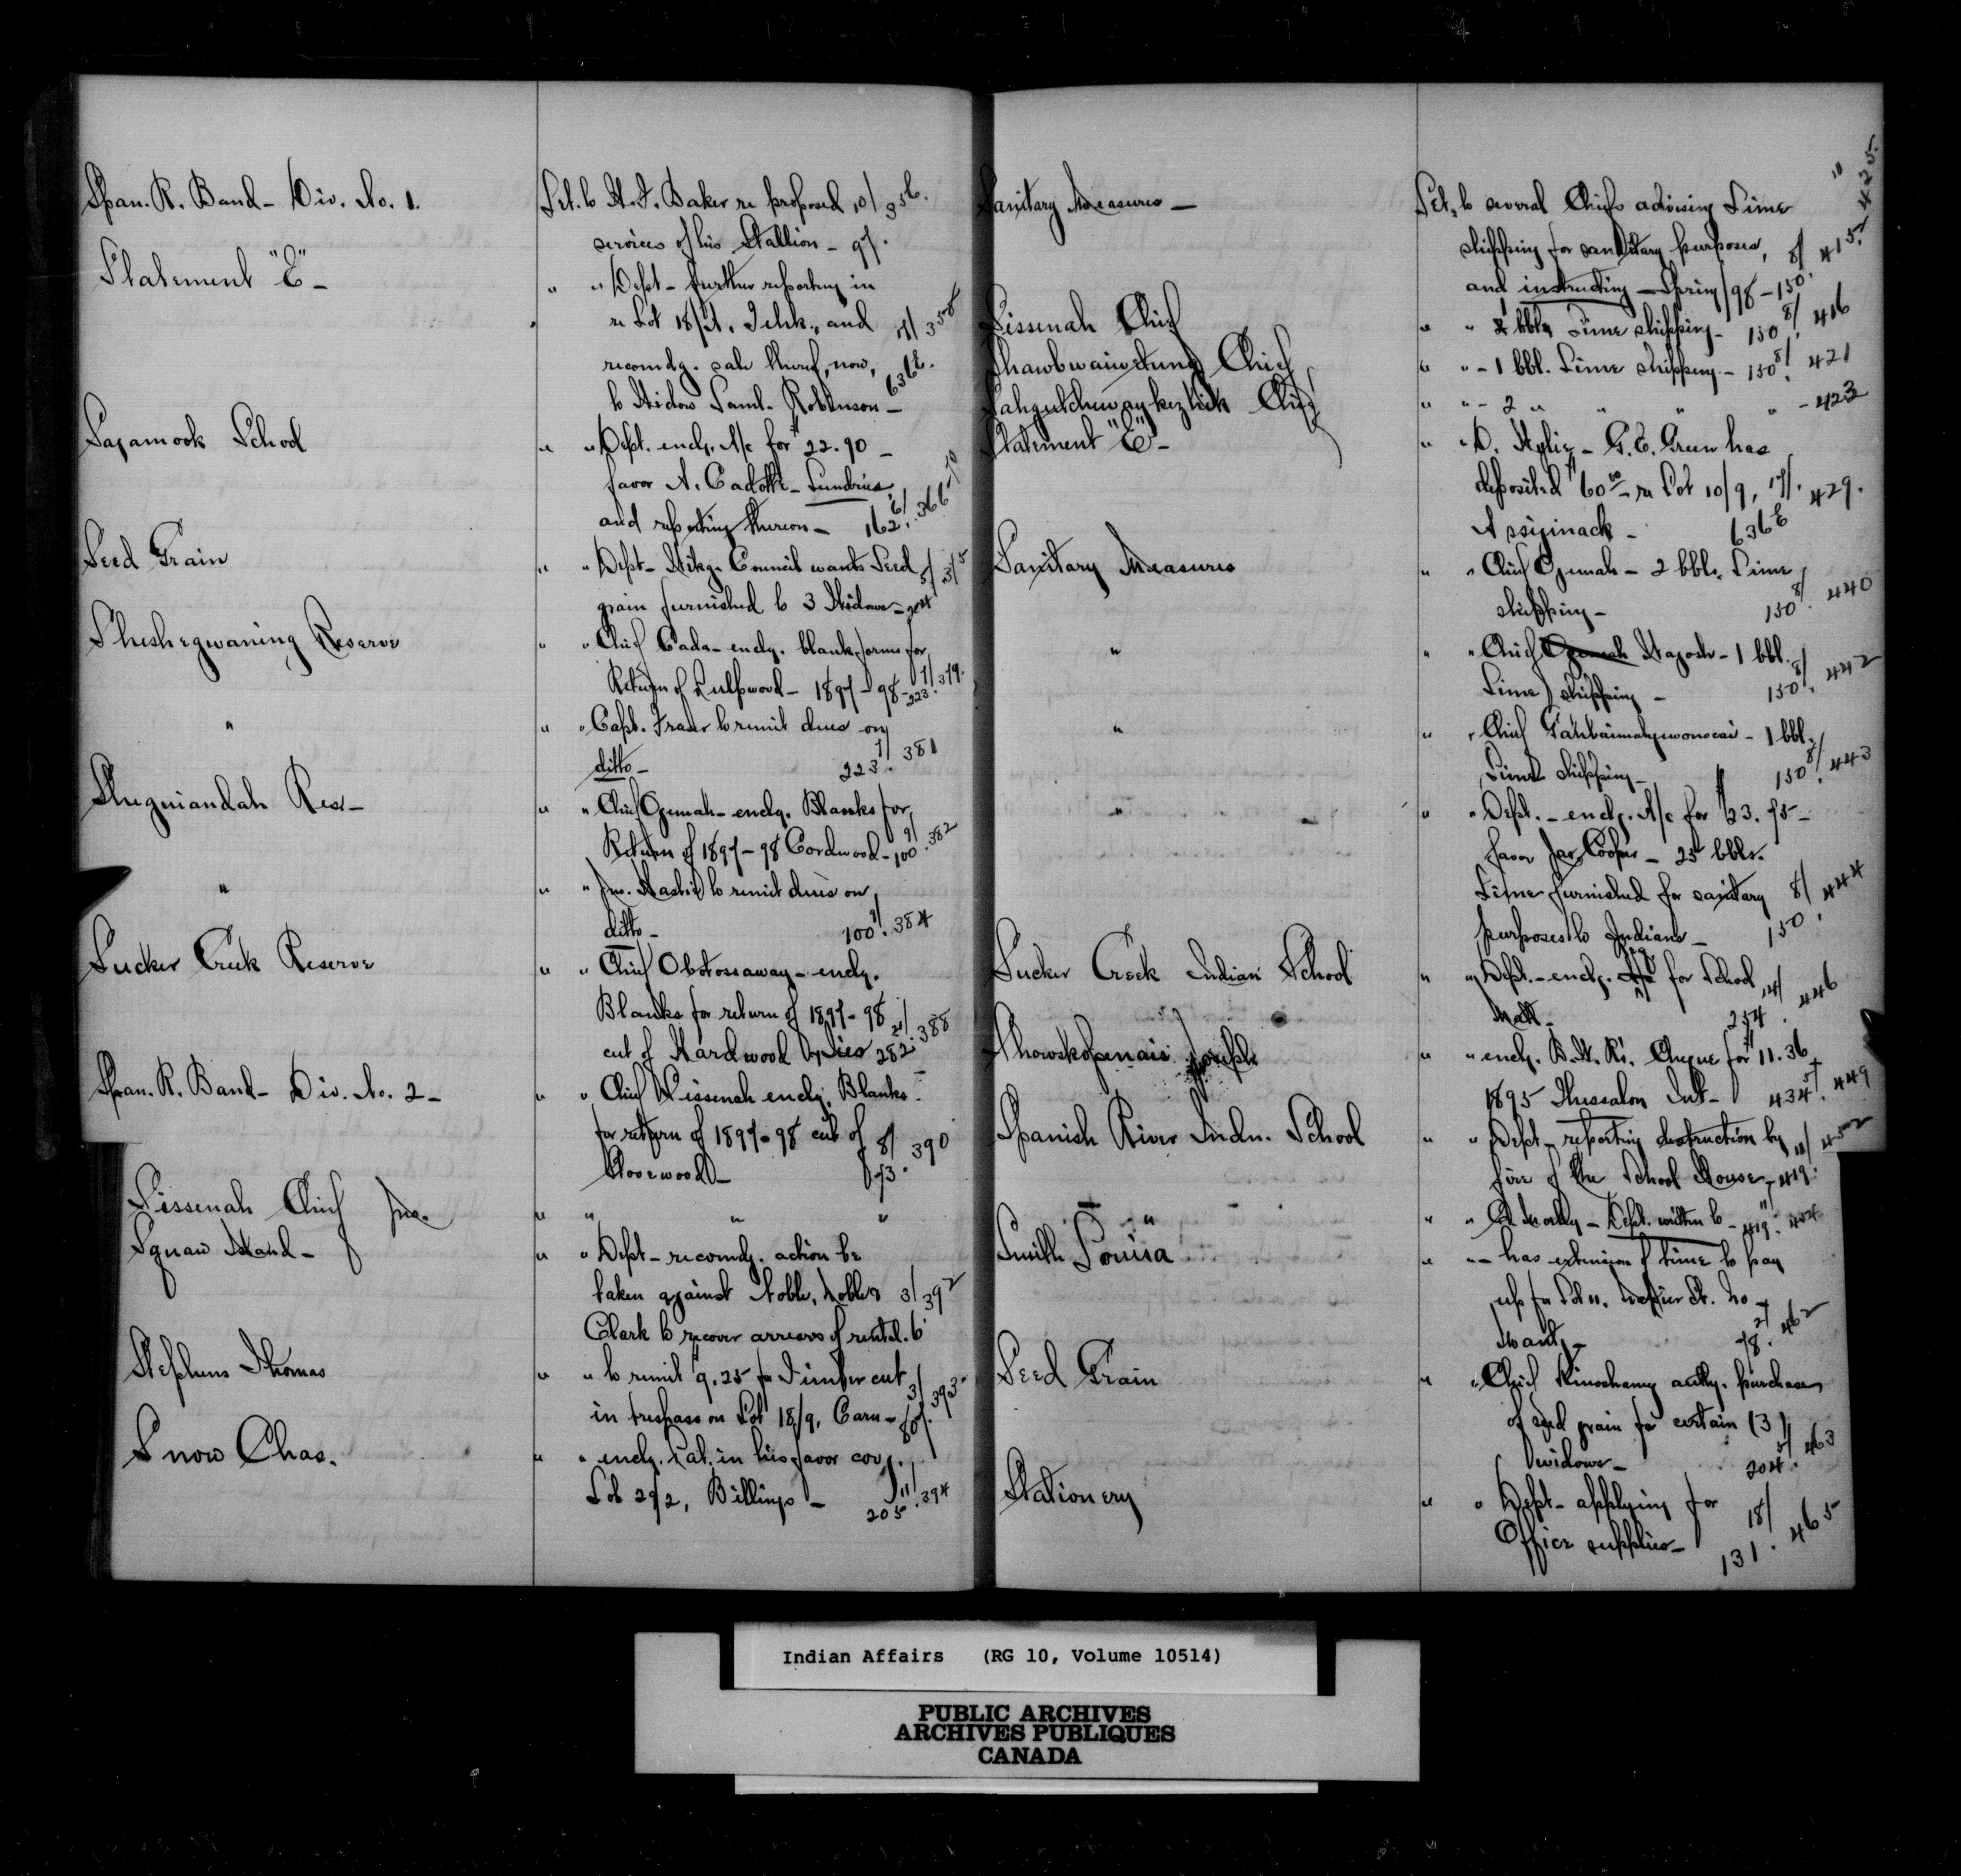 Span. R. Band - Div. No. 1.
Let. to H. F. Baker re proposed 10/ 356.
services of his Stallion - 97.
Statement "E" -
" " Dept - further reporting in
re Lot 18/, Tehk., and 17/ 358
recomdg. sale thereof, now, 636E.
to Widow Saml. Robinson -
Sagamook School
" " Dept. enclg. A/c for $22.90 -
favor A. Cadotte - Sundries
and reporting thereon - 162 6/. 366-70
Seed Grain
" " Dept - Wikg. Council wants Seed 5/ 375
grain furnished to 3 Widows - 204
Sheshegwaning Reserve
" " Chief Cada - enclg. blank forms for
Return of Pulpwood - 1897-98 - 223 1/. 379.
"
" " Capt. Fraser to remit dues on
ditto - 223 1/. 381
Sheguiandah Res -
" " Chief Ogemah - enclg. Blanks for
Return of 1897-98 Cordwood - 100 9/. 382
"
" " Jno. Hastie to remit dues on
ditto - 100 9/. 384
Sucker Creek Reserve
" " Chief Obotossaway - enclg.
Blanks for return of 1897-98
cut of Hardwood 282 21/. 388
Span. R. Band - Div. No. 2 -
" " Chief Pissenah enclg. Blanks
for return of 1897-98 cut of 8/ 390
Stovewood - 173.
Sissenah Chief Jno.
" " " "
Squaw Island -
" " Dept - recomdg. action be
taken against Noble, Noble & 3/ 392
Clark to recover arrears of rental. 6
Stephens Thomas
" " to remit $9.25 for Timber cut
in trespass on Lot 18/9, Carn - 3/ 393.
Snow Chas.
" " enclg. Pat. in his favor covg.
Lot 29/2, Billings - 205 11/. 394
Sanitary Measures -
Let. to several Chiefs advising Lime " 425.
shipping for sanitary purposes, 8/ 415.
and instructing - Spring/98 - 150.
Sissenah Chief
" " bbls Lime shipping - 150 8/. 416
Shawbwaiwetung Chief
" " - 1 bbl. Lime shipping - 150 8/. 421
Chief
" " - 2 " " " " - 423
Statement "E" -
" " D. Wylie - G. E. Green has
deposited $60.00 - re Lot 10/9, 17/. 429.
Assiginack - 636E
Sanitary Measures
" " Chief Ogemah - 2 bbls. Lime
shipping - 150 8/. 440
"
" " Chief Ogemah Wagosh - 1 bbl.
Lime shipping - 150 8/. 442
"
" " Chief - 1 bbl.
Lime shipping - 150 8/. 443
"
" " Dept. - enclg. A/c for $23.75 -
favor Jas. Cooper - 25 bbls.
Lime furnished for sanitary 8/ 444
purposes to Indians - 150.
Sucker Creek Indian School
" " Dept. - enclg. for School 14/ 446
Matl. - 254.
Shawskopenais Joseph
" " enclg. cheque for $11.36
1895 Thessalon Int - 434 5/. 449
Spanish River Indn. School
" " Dept - reporting destruction by 11/ 452
fire of the School House - 419.
"
" " - Dept. written to - 419 11/. 454
Smith Louisa
" " - has extension of time to pay
up for Lot 11, St. No
- 78. 2/ 462
Seed Grain
" " Chief Kinoshameg authg. purchase
of seed grain for certain (3)
widows - 204 5/. 463
Stationery
" " Dept - applying for 18/
Office supplies - 131. 465
Indian Affairs (RG 10, Volume 10514)
PUBLIC ARCHIVES
ARCHIVES PUBLIQUES
CANADA